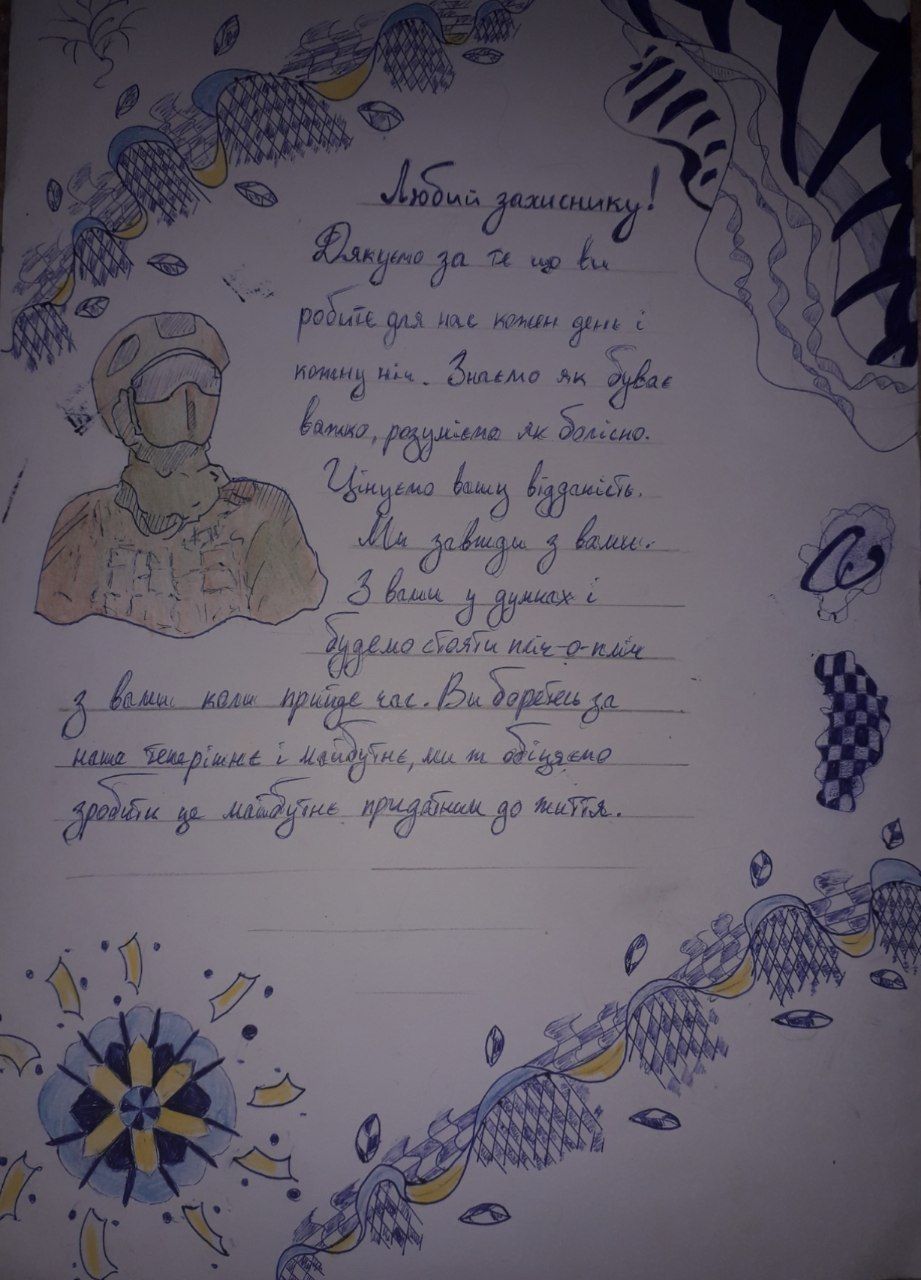 Любий захиснику!
Дякуємо за те що ви
робите для нас кожен день і
кожну ніч. Знаємо як буває
важко, розуміємо як болісно.
Цінуємо вашу відданість.
Ми завжди з вами.
З вами у думках і
будемо стояти пліч-о-пліч
з вами коли прийде час. Ви боретесь за
наше теперішнє і майбутнє, ми ж обіцяємо
зробити це майбутнє придатним до життя.